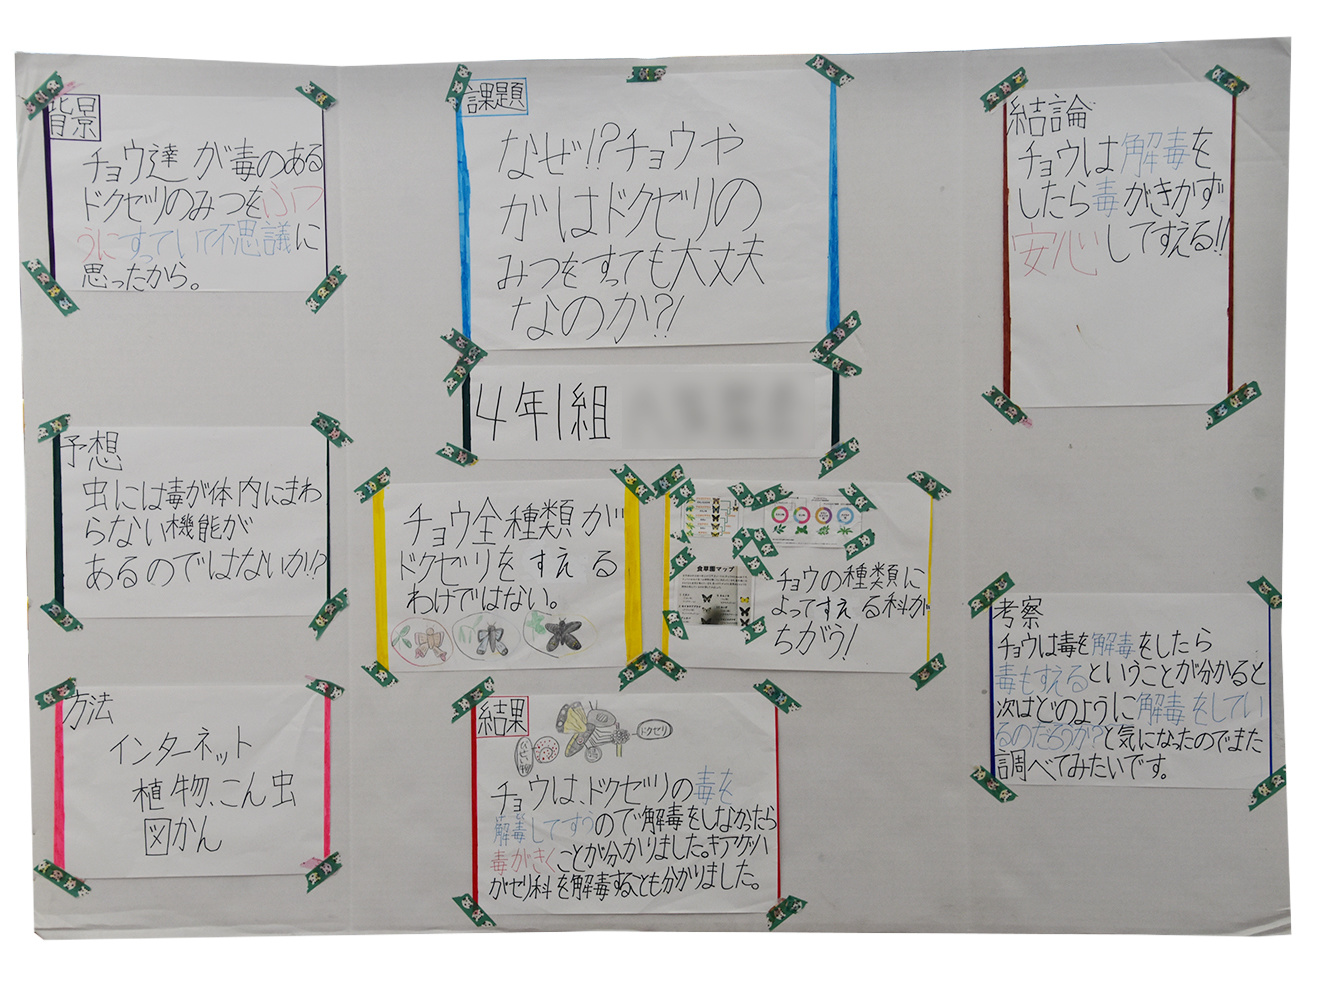 背景
チョウ達が毒のある
ドクゼリのみつをふつ
うにすっていて不思議に
思ったから。
予想
虫には毒が体内にまわ
らない機能が
あるのではないか!?
方法
インターネット
植物、こん虫
図かん
課題
なぜ!?チョウや
ガはドクゼリの
みつをすっても大丈夫
なのか?!
4年1組
チョウ全種類が
ドクゼリをすえる
わけではない。
食草園マップ
チョウの種類に
よってすえる科が
ちがう!
結果
ドクゼリ
チョウは、ドクゼリの毒を
解毒してすうので解毒をしなかったら
毒がきくことが分かりました。キアゲハ
がセリ科を解毒することも分かりました。
結論
チョウは解毒を
したら毒がきかず
安心してすえる!!
考察
チョウは毒を解毒をしたら
毒もすえるということが分かると
次はどのように解毒をしてい
るのだろうか?と気になったのでまた
調べてみたいです。